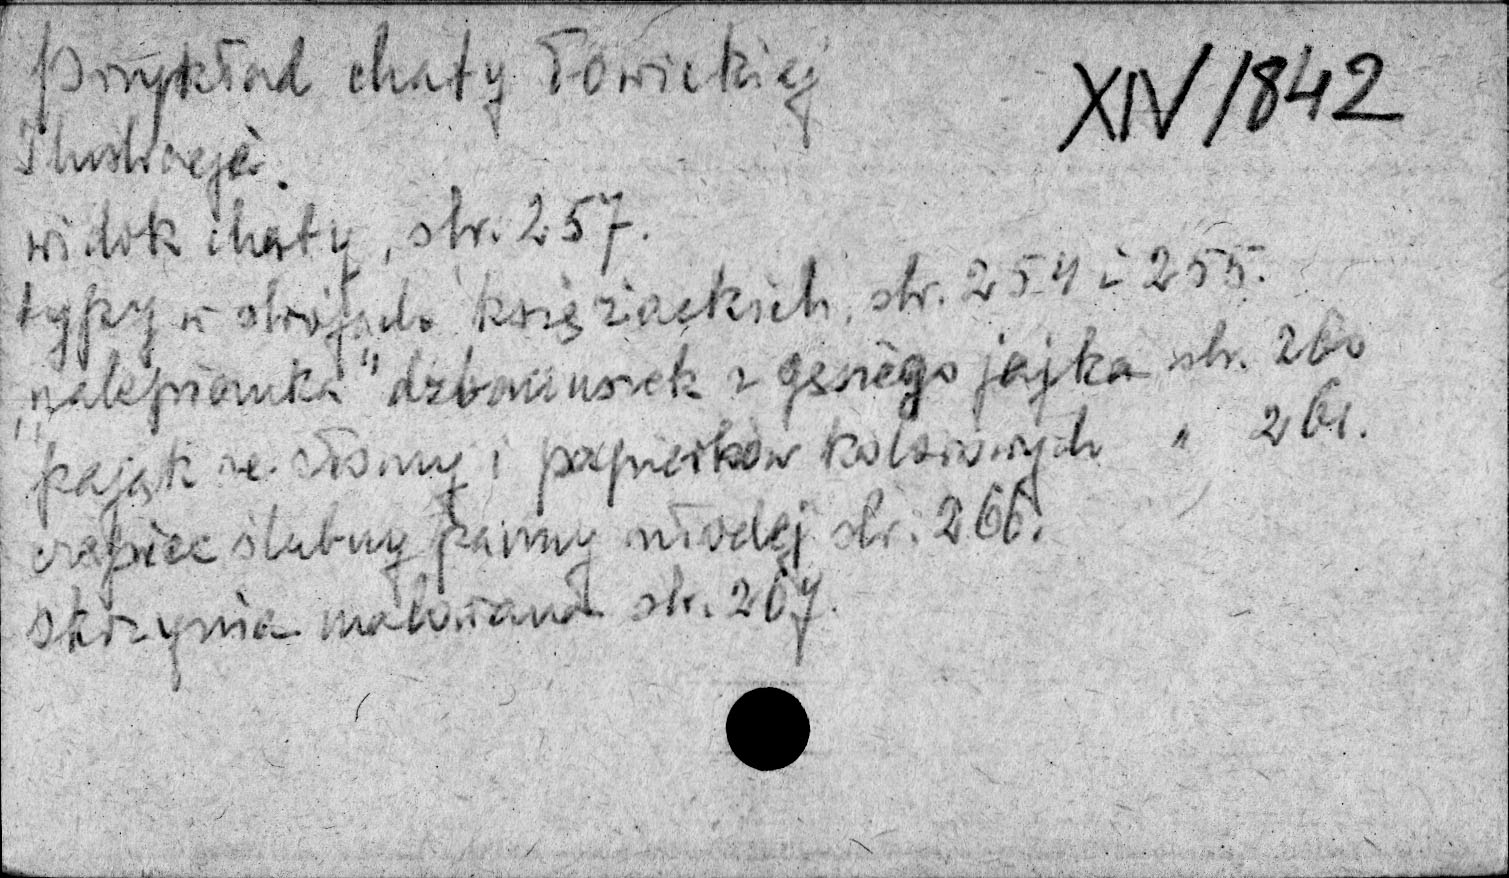 Przykład chaty Łowickiej XIV/842
Ilustracje.
widok chaty, str. 257.
typy w strojach księżackich, str. 254 i 255.
"nalepianka" dzbanuszek z gęsiego jajka str. 260
pająk ze słomy i papierków kolorowych " 261.
czepiec ślubny panny młodej str. 266.
skrzynia malowana str. 267.